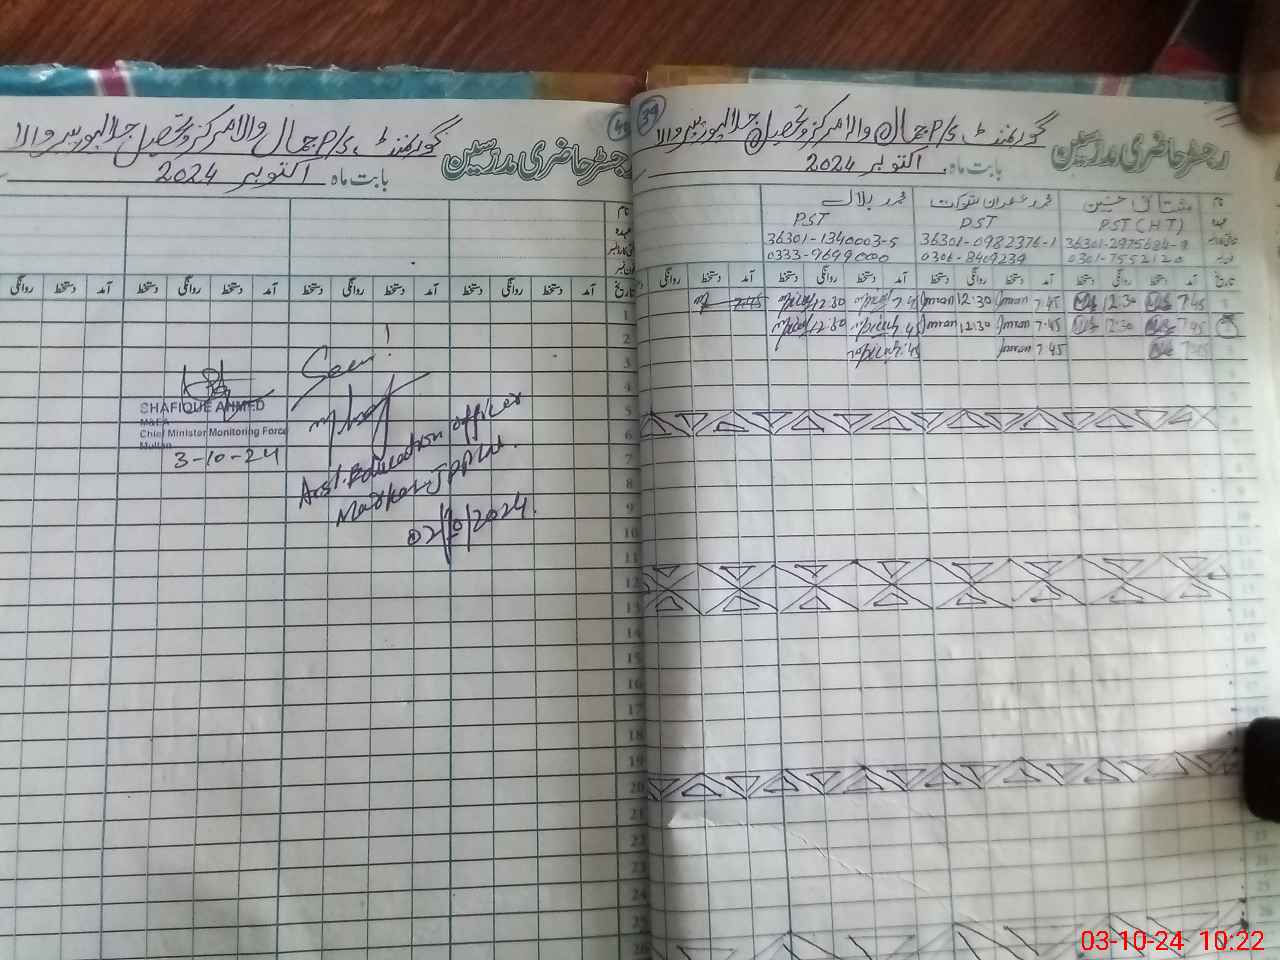 39
گورنمنٹ P/S جمال والا مرکز و تحصیل جلالپور پیر والا
رجسٹر حاضری مدرسین
بابت ماہ اکتوبر 2024
نام مشتاق حسین محمد عمران شوکت محمد بلال
عہدہ PST (HT) PST PST
36301-2975684-9 36301-0982376-1 36301-1340003-5
0301-7552120 0306-8409239 0333-7699000
تاریخ آمد دستخط روانگی دستخط آمد دستخط روانگی دستخط آمد دستخط روانگی دستخط آمد دستخط روانگی
7.45 12:30 7.45 Imran 12:30 Imran 7.45 12:30
7.45 12:30 7.45 Imran 12:30 Imran 7.45 12:30
7.45 7.45 Imran 7.45
40
گورنمنٹ P/S جمال والا مرکز و تحصیل جلالپور پیر والا
رجسٹر حاضری مدرسین
بابت ماہ اکتوبر 2024
نام
عہدہ
تاریخ آمد دستخط روانگی دستخط آمد دستخط روانگی دستخط آمد دستخط روانگی دستخط آمد دستخط روانگی
1
2
3
4
5
6
7
8
9
10
11
12
13
14
15
16
17
18
19
20
21
22
23
24
25
26
Seen!
Asst. Education officer
Markaz JPPW.
02/10/2024.
SHAFIQUE AHMED
M&EA
Chief Minister Monitoring Force
Multan
3-10-24
03-10-24 10:22